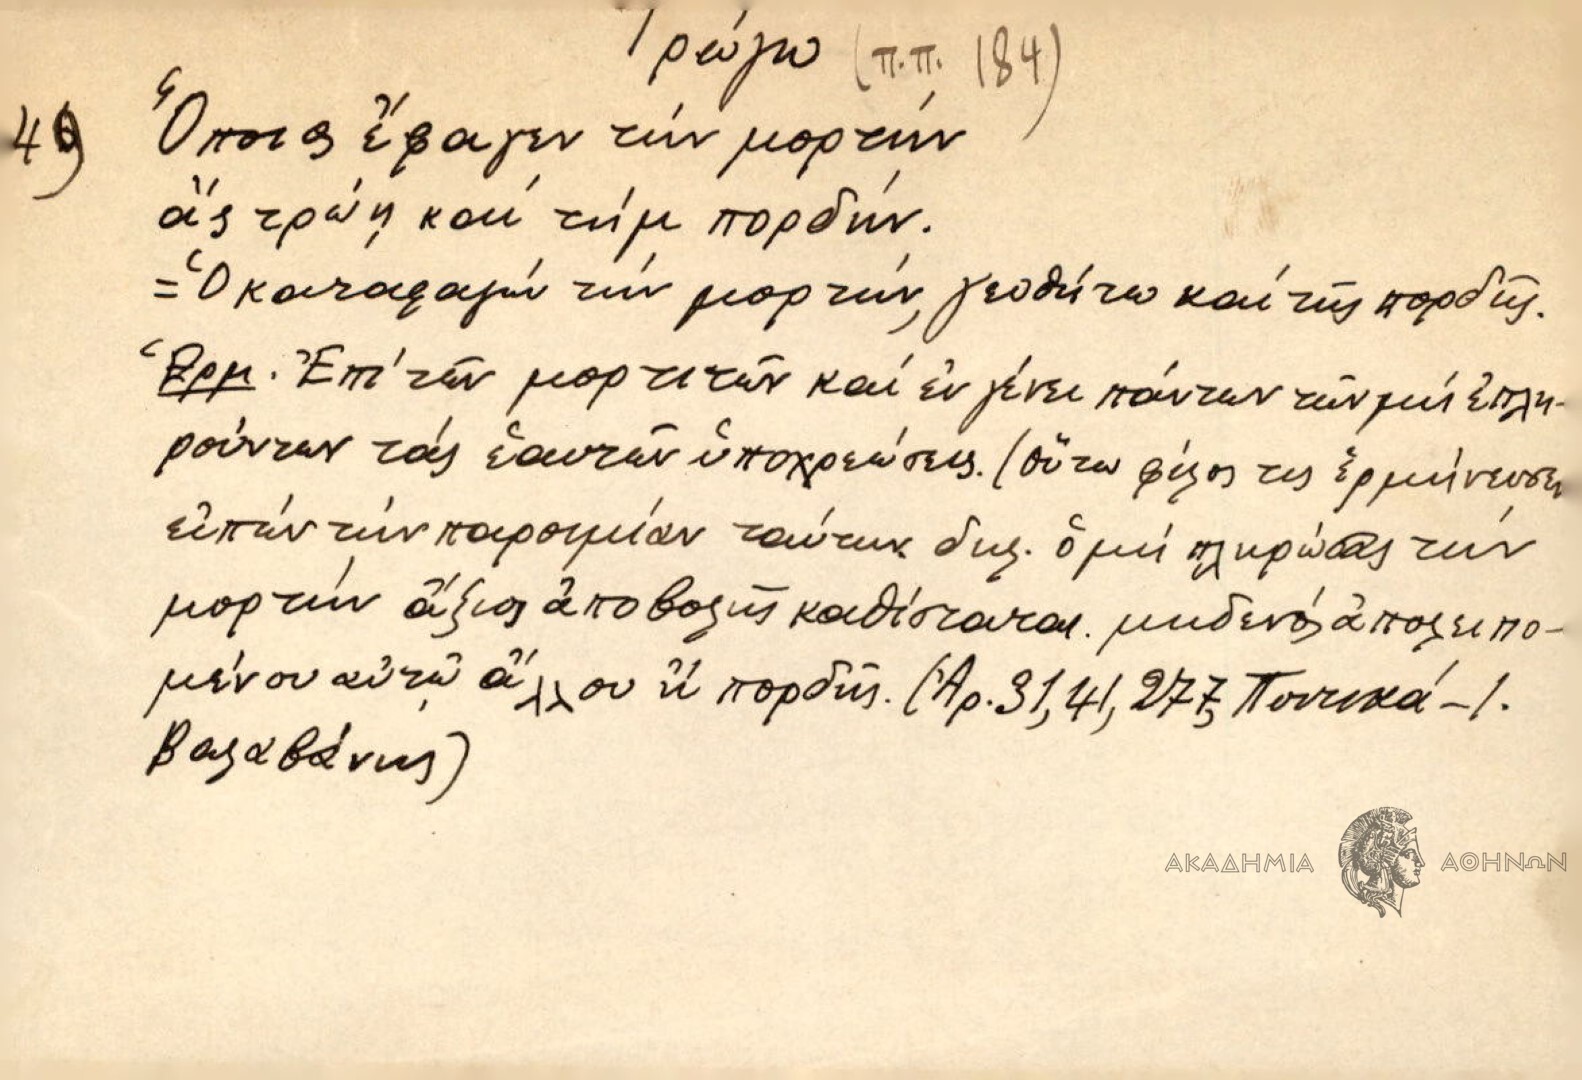 Τρώγω (π.π. 184)
49) Ὅποιος ἔφαγεν τὴν μορτὴν
ἂς τρώῃ καὶ τὴμ πορδήν.
= Ὁ καταφαγὼν τὴν μορτήν, γευθήτω καὶ τῆς πορδῆς.
Ἑρμ. Ἐπὶ τῶν μορτιτῶν καὶ ἐν γένει πάντων τῶν μὴ ἐκπλη-
ρούντων τὰς ἑαυτῶν ὑποχρεώσεις. (Οὕτω φίλος τις ἑρμήνευσεν
εἰπὼν τὴν παροιμίαν ταύτην δηλ. ὁ μὴ πληρώσας τὴν
μορτὴν ἄξιος ἀποβολῆς καθίσταται. μηδενὸς ἀπολειπο-
μένου αὐτῷ ἄλλου ἢ πορδῆς. (Ἀρ. 31, 41, 277, Ποντικά - Ι.
Βαλαβάνης)
ΑΚΑΔΗΜΙΑ ΑΘΗΝΩΝ